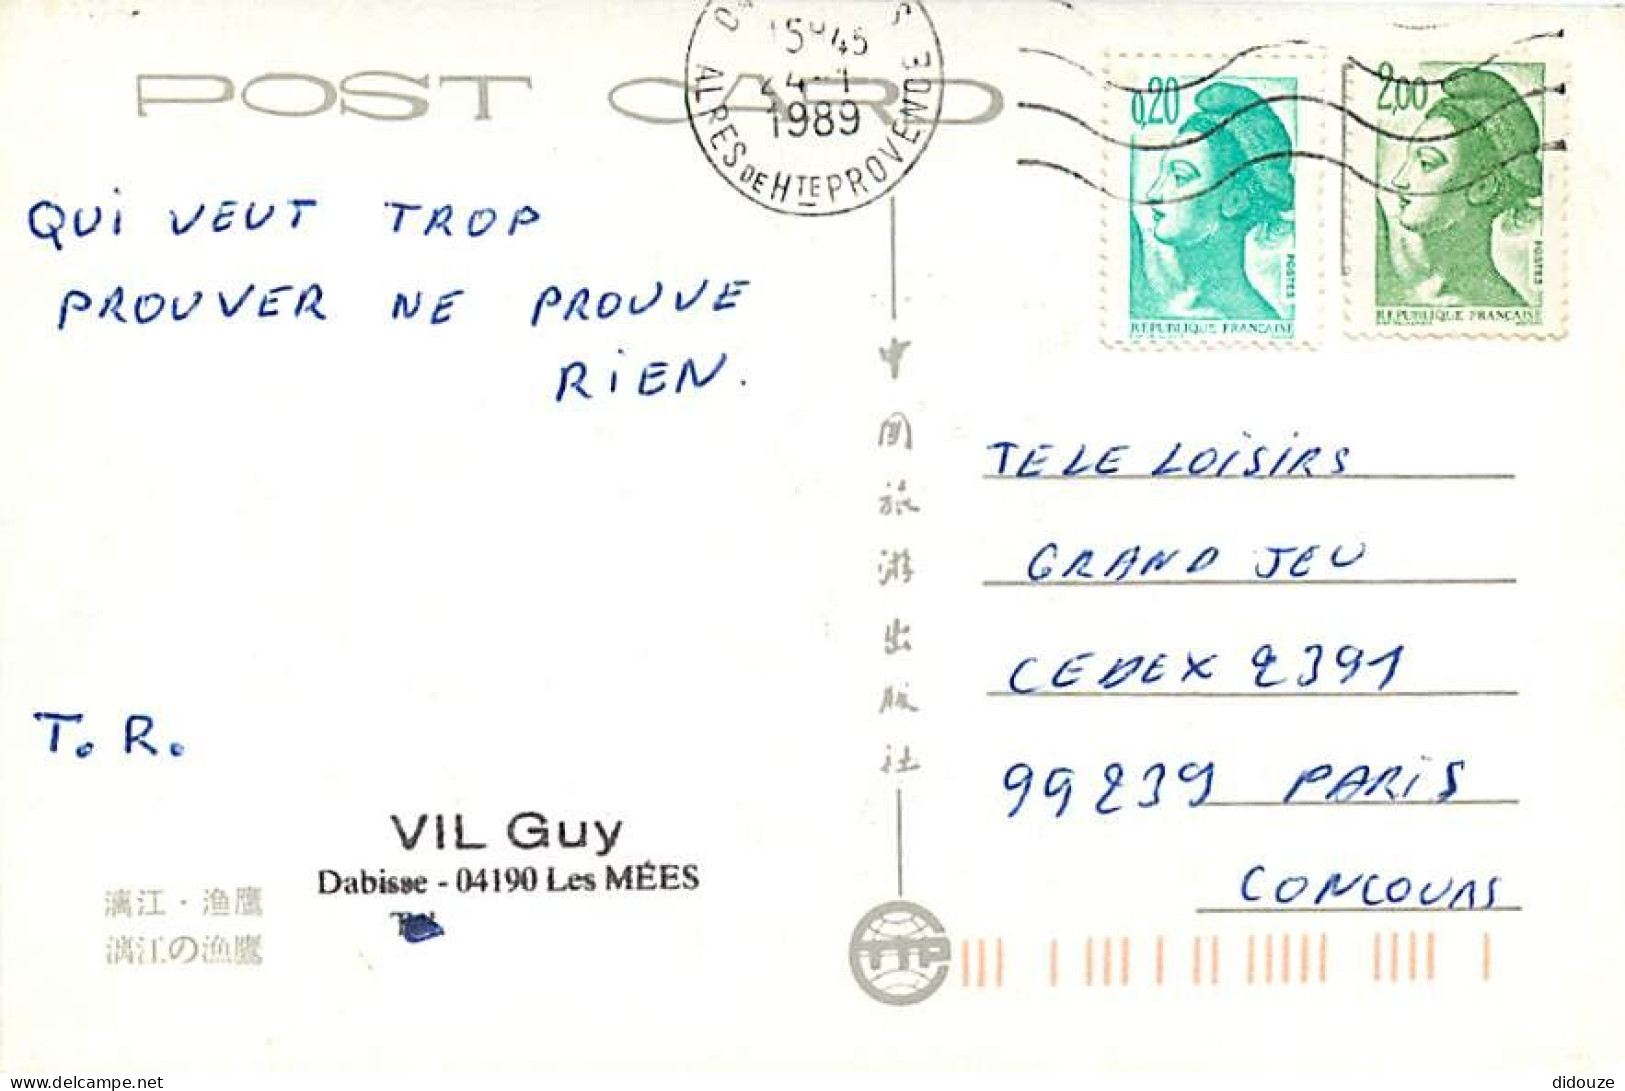 POST CARD
15H45
24-1
1989
ALPES DE HTE PROVENCE
0,20
POSTES
REPUBLIQUE FRANÇAISE
2,00
POSTES
REPUBLIQUE FRANÇAISE
QUI VEUT TROP
PROUVER NE PROUVE
RIEN.
T. R.
VIL Guy
Dabisse - 04190 Les MÉES
漓江・渔鹰
漓江の漁鷹
中国旅游出版社
TTP
TELE LOISIRS
GRAND JEU
CEDEX 2391
99239 PARIS
CONCOURS
delcampe.net
didouze